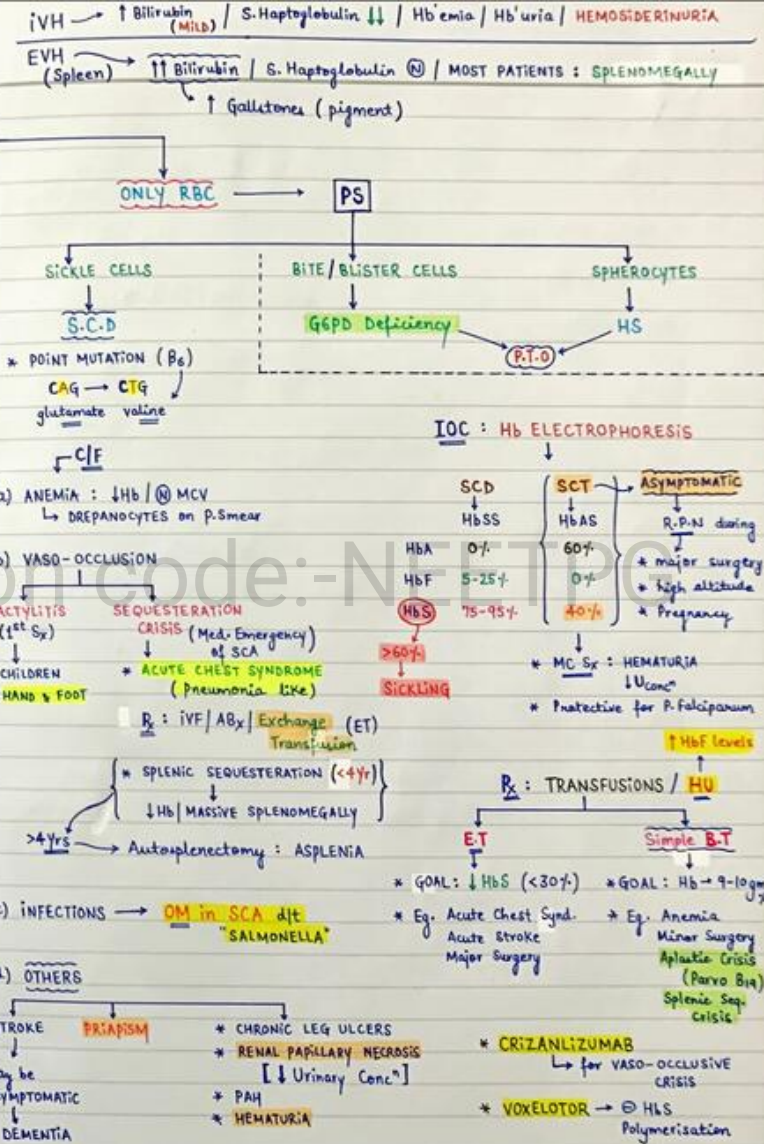 iVH → ↑ Bilirubin (MILD) / S. Haptoglobulin ↓↓ / Hb'emia / Hb'uria / HEMOSIDERINURIA
EVH (Spleen) → ↑↑ Bilirubin / S. Haptoglobulin Ⓝ / MOST PATIENTS : SPLENOMEGALLY
↑ Gallstones (pigment)
ONLY RBC → PS
SICKLE CELLS
BITE/BLISTER CELLS
SPHEROCYTES
S.C.D
G6PD Deficiency
HS
P.T.O
* POINT MUTATION (B6)
CAG → CTG
glutamate valine
C/F
a) ANEMIA : ↓Hb / Ⓝ MCV
↳ DREPANOCYTES on P.Smear
b) VASO-OCCLUSION
ACTYLITIS
(1st Sx)
CHILDREN
HAND & FOOT
SEQUESTERATION
CRISIS (Med. Emergency
of SCA)
* ACUTE CHEST SYNDROME
(Pneumonia like)
Rx : iVF / ABx / Exchange (ET)
Transfusion
* SPLENIC SEQUESTERATION (<4yr)
↓Hb / MASSIVE SPLENOMEGALLY
>4yrs → Autosplenectomy : ASPLENIA
c) INFECTIONS → OM in SCA d/t
"SALMONELLA"
d) OTHERS
TROKE
ay be
YMPTOMATIC
DEMENTIA
PRIAPISM
* CHRONIC LEG ULCERS
* RENAL PAPILLARY NECROSIS
[↓ Urinary Concⁿ]
* PAH
* HEMATURIA
IOC : Hb ELECTROPHORESIS
SCD SCT → ASYMPTOMATIC
HbSS HbAS
HbA 0% 60%
HbF 5-25% 0%
HbS 75-95% 40%
>60%
SICKLING
R.P.N during
* major surgery
* high altitude
* Pregnancy
* MC Sx : HEMATURIA
↓Uconcⁿ
* Protective for P. Falciparum
↑ HbF levels
Rx : TRANSFUSIONS / HU
E.T
* GOAL : ↓ HbS (<30%)
* Eg. Acute Chest Synd.
Acute Stroke
Major Surgery
Simple B.T
* GOAL : Hb → 9-10gm
* Eg. Anemia
Minor Surgery
Aplastic Crisis
(Parvo B19)
Splenic Seq.
Crisis
* CRIZANLIZUMAB
↳ for VASO-OCCLUSIVE
CRISIS
* VOXELOTOR → ⊖ HbS
Polymerisation
on code:-NEETPG